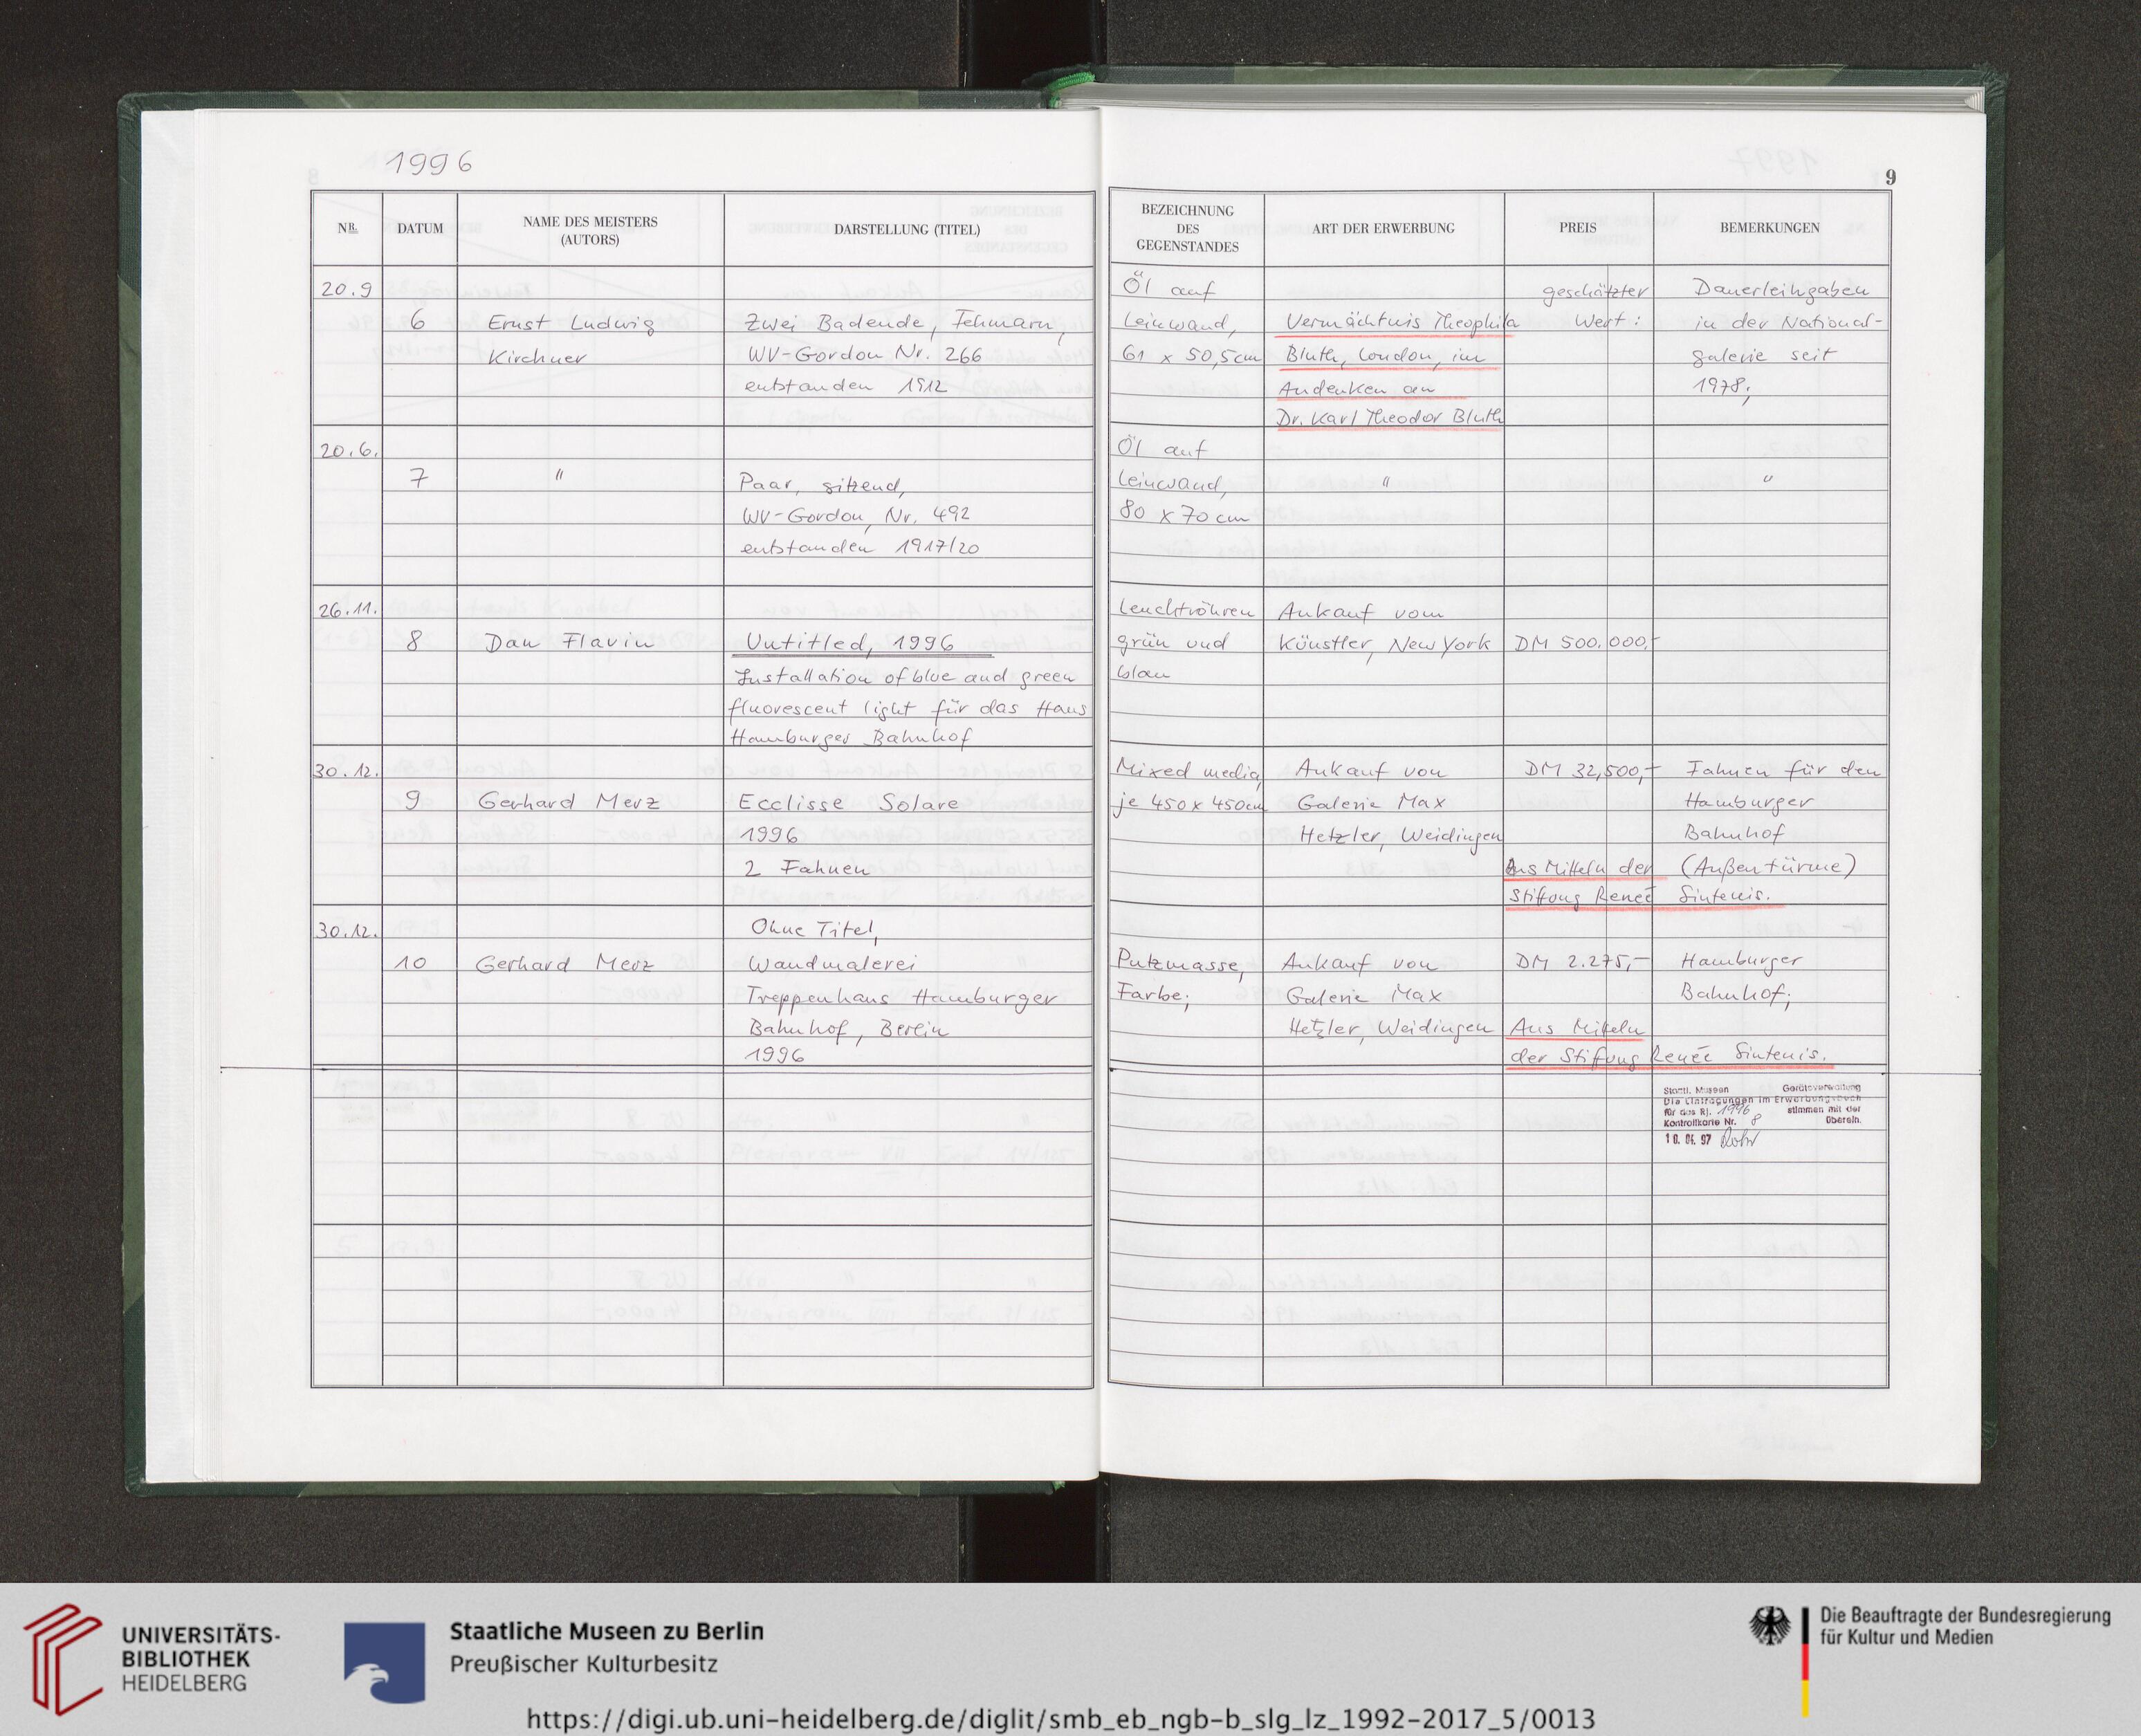 1996
9
NR.
DATUM
NAME DES MEISTERS
(AUTORS)
DARSTELLUNG (TITEL)
BEZEICHNUNG
DES
GEGENSTANDES
ART DER ERWERBUNG
PREIS
BEMERKUNGEN
20.9 Öl auf geschätzter Dauerleihgaben
6 Ernst Ludwig Zwei Badende, Fehmarn, Leinwand, Vermächtnis Theophila Wert: in der National-
Kirchner WV-Gordon Nr. 266 61 x 50,5cm Bluth, London, im galerie seit
entstanden 1912 Andenken an 1978;
Dr. Karl Theodor Bluth
20.6. Öl auf
7 " Paar, sitzend, Leinwand, " "
WV-Gordon, Nr. 492 80 x 70 cm
entstanden 1917/20
26.11. Leuchtröhren Ankauf vom
8 Dan Flavin Untitled, 1996 grün und Künstler, New York DM 500.000,-
Installation of blue and green blau
fluorescent light für das Haus
Hamburger Bahnhof
30.12. Mixed media, Ankauf von DM 32,500,- Fahnen für den
9 Gerhard Merz Ecclisse Solare je 450 x 450cm Galerie Max Hamburger
1996 Hetzler, Weidingen Bahnhof
2 Fahnen Aus Mitteln der (Außentürme)
Stiftung Reneé Sintenis.
30.12. Ohne Titel,
10 Gerhard Merz Wandmalerei Putzmasse, Ankauf von DM 2.275,- Hamburger
Treppenhaus Hamburger Farbe; Galerie Max Bahnhof;
Bahnhof, Berlin Hetzler, Weidingen Aus Mitteln
1996 der Stiftung Reneé Sintenis.
Staatl. Museen Geräteverwaltung
Die Eintragungen im Erwerbungsbuch
für das Rj. 1996 stimmen mit der
Kontrollkarte Nr. 8 überein.
10. 04. 97 Rohr
UNIVERSITÄTS-
BIBLIOTHEK
HEIDELBERG
Staatliche Museen zu Berlin
Preußischer Kulturbesitz
Die Beauftragte der Bundesregierung
für Kultur und Medien
https://digi.ub.uni-heidelberg.de/diglit/smb_eb_ngb-b_slg_lz_1992-2017_5/0013